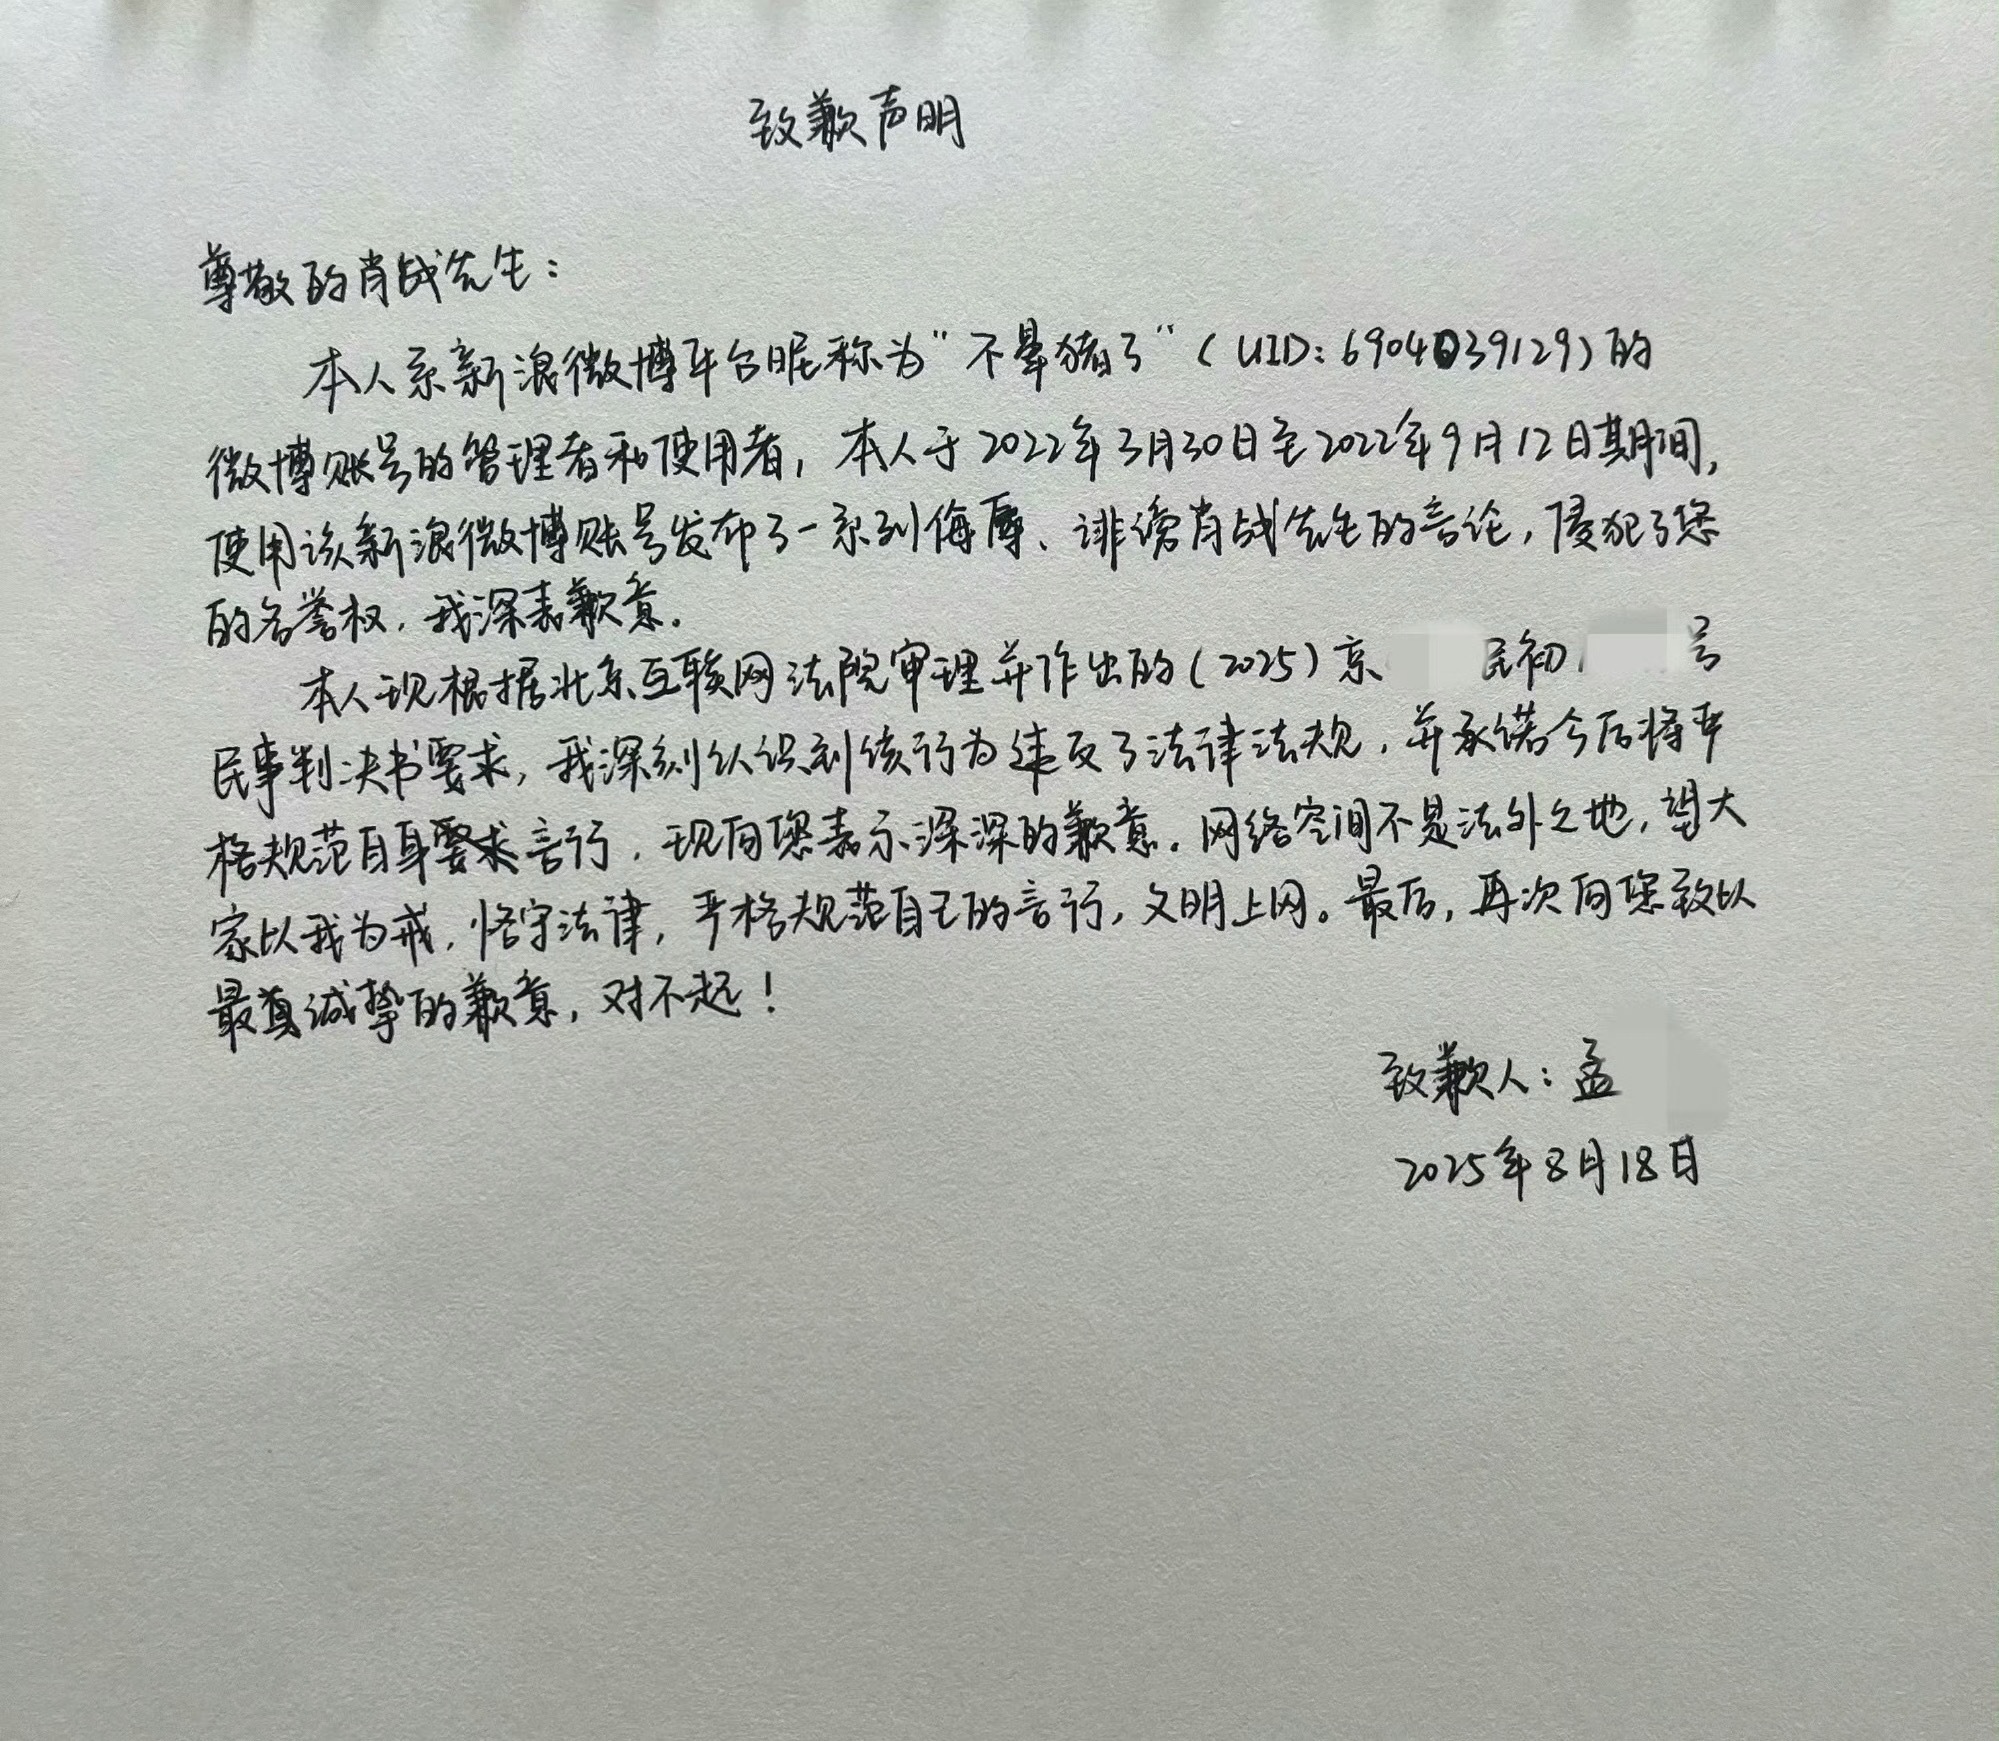 致歉声明
尊敬的肖战先生：
本人系新浪微博平台昵称为“不晕猪了”（UID：6904039129）的
微博账号的管理者和使用者，本人于2022年3月30日至2022年9月12日期间，
使用该新浪微博账号发布了一系列侮辱、诽谤肖战先生的言论，侵犯了您
的名誉权，我深表歉意。
本人现根据北京互联网法院审理并作出的（2025）京 民初 号
民事判决书要求，我深刻认识到该行为违反了法律法规，并承诺今后将严
格规范自身言行，现向您表示深深的歉意。网络空间不是法外之地，望大
家以我为戒，恪守法律，严格规范自己的言行，文明上网。最后，再次向您致以
最真诚挚的歉意，对不起！
致歉人：孟
2025年8月18日